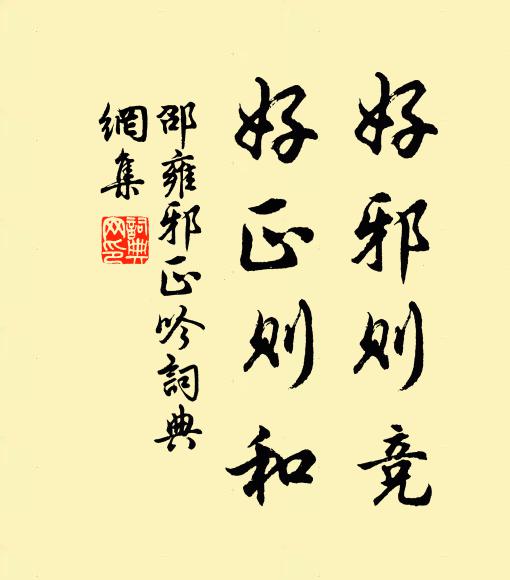 好邪则竞
好正则和
邵雍邪正吟詞典
網集
詞典
网印